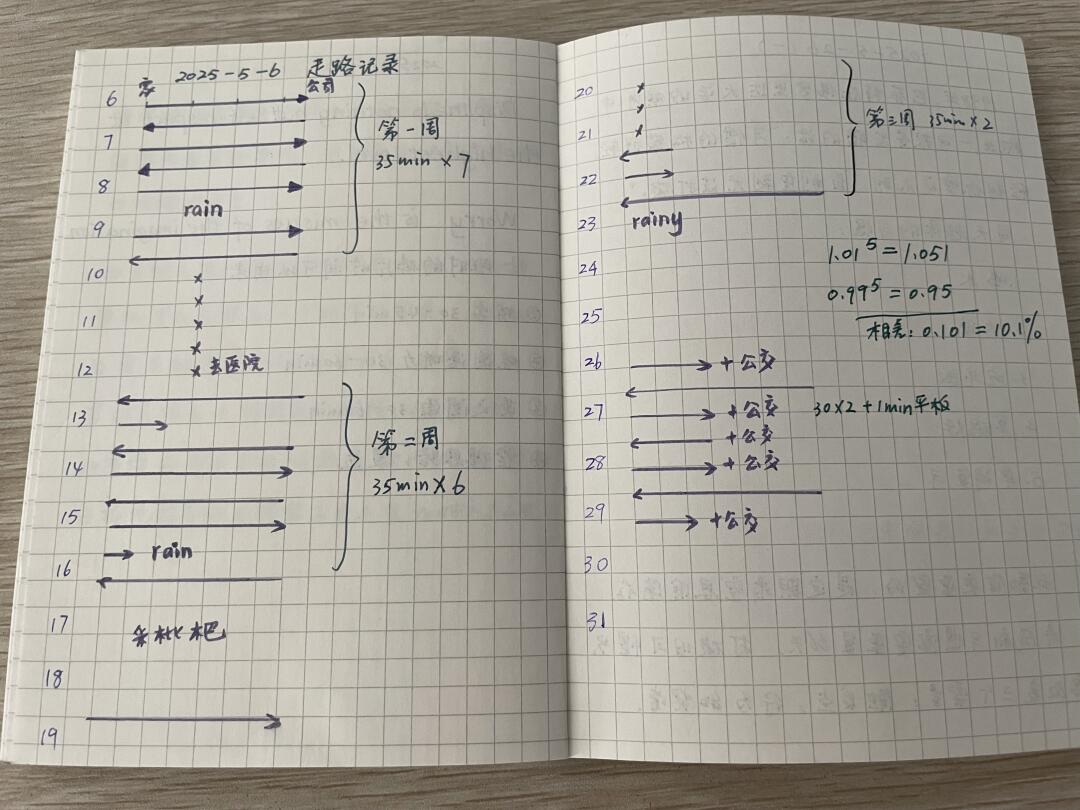 2025-5-6 走路记录
家 公司
6
7
8
rain
9
10
第一周
35min × 7
×
×
11
×
×
12
× 去医院
13
14
15
第二周
35min × 6
rain
16
17
18
19
20
×
×
21
×
22
第三周 35min × 2
23
rainy
24
25
1.01⁵ = 1.051
0.99⁵ = 0.95
相差: 0.101 = 10.1%
26
+ 公交
27
+ 公交
30×2 + 1min平板
+ 公交
28
+ 公交
29
+ 公交
30
31